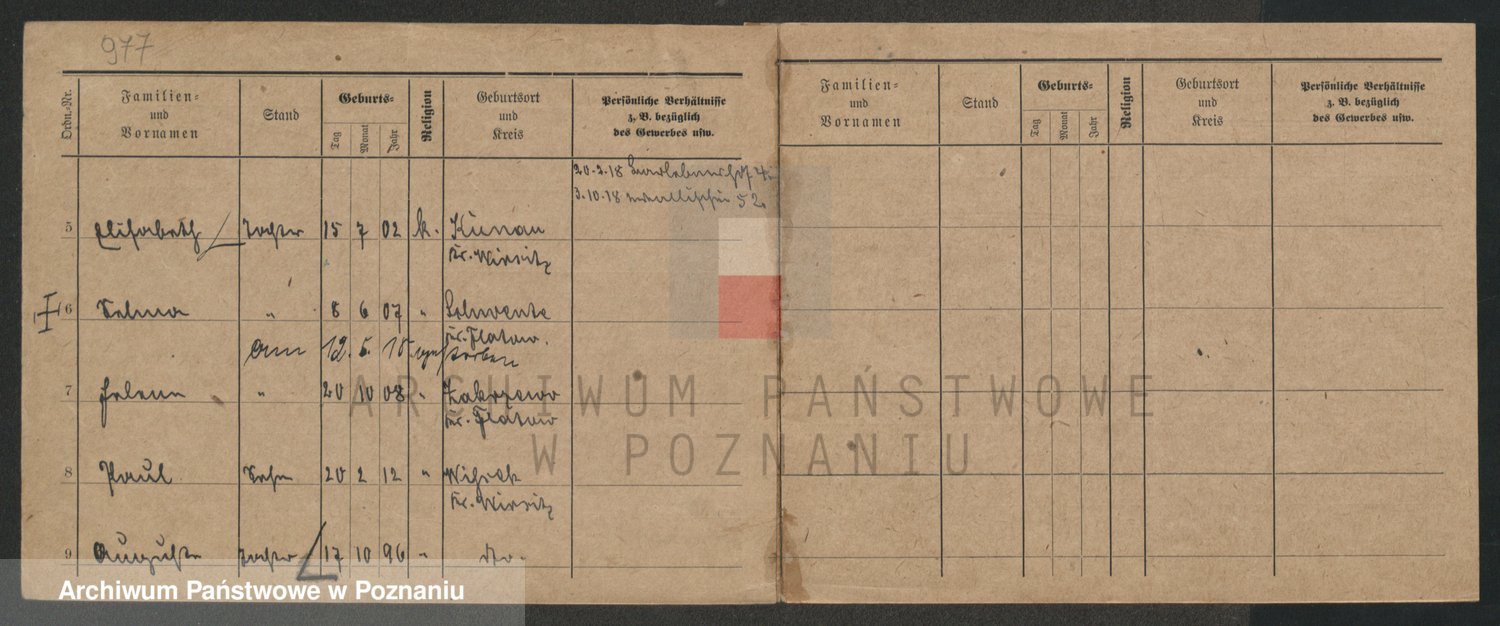 977
Ordn.-Nr.
Familien-
und
Vornamen
Stand
Geburts-
Tag
Monat
Jahr
Religion
Geburtsort
und
Kreis
Persönliche Verhältnisse
z. B. bezüglich
des Gewerbes usw.
Familien-
und
Vornamen
Stand
Geburts-
Tag
Monat
Jahr
Religion
Geburtsort
und
Kreis
Persönliche Verhältnisse
z. B. bezüglich
des Gewerbes usw.
20.2.18
3.10.18 52.
5 Elisabeth Tochter 15 7 02 k. Kunau
Kr. Wirsitz
6 Selma " 8 6 07 "
Kr. Flatow.
am 12. 5. 15. gestorben
7 Helene " 20 10 08 " Zakrzewo
Kr. Flatow
8 Paul Sohn 20 2 12 "
Kr. Wirsitz
9 Auguste Tochter 17 10 96 " do.
ARCHIWUM PAŃSTWOWE
W POZNANIU
Archiwum Państwowe w Poznaniu